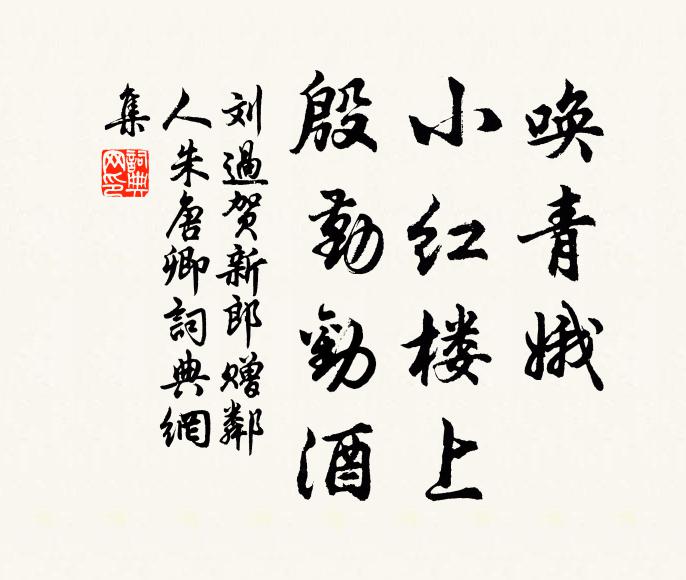 唤青娥
小红楼上
殷勤劝酒
刘过贺新郎赠鄰
人朱唐卿詞典網
集
詞典
网印